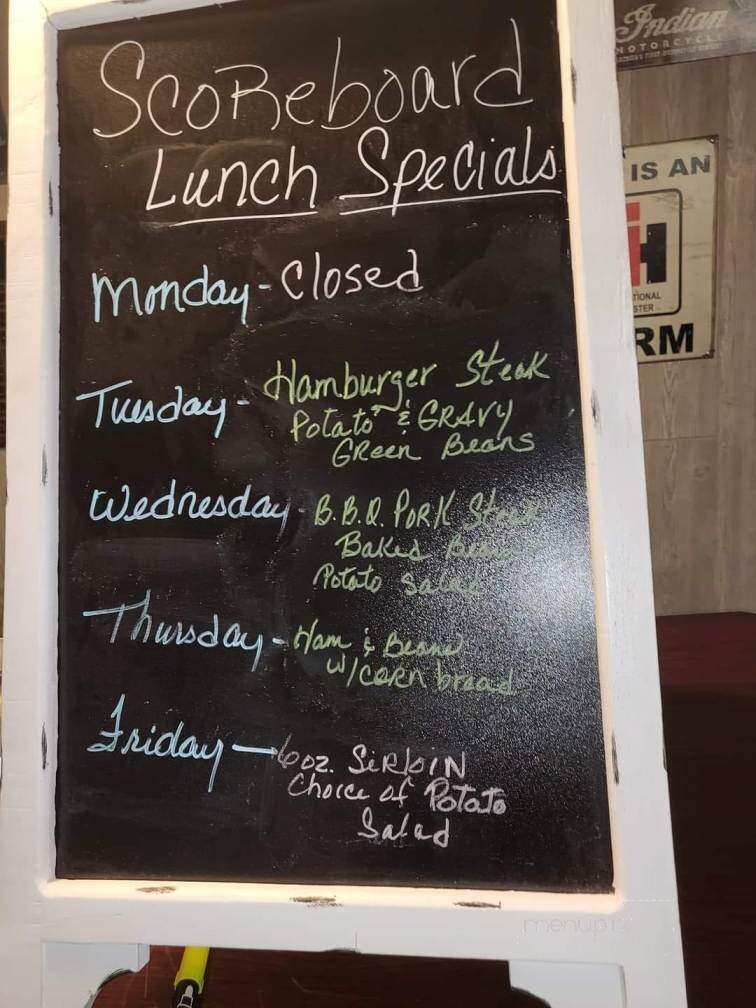 ScoReboard
Lunch Specials
Monday - Closed
Tuesday - Hamburger Steak
Potato & GRAVY
GReen Beans
Wednesday - B.B.Q. PORK Steak
Baked Beans
Potato Salad
Thursday - Ham & Beans
w/ CORN bread
Friday → 6oz. SiRloiN
Choice of Potato
Salad
Indian
MOTORCYCLE
IS AN
IH
TIONAL
STER
RM
menupix